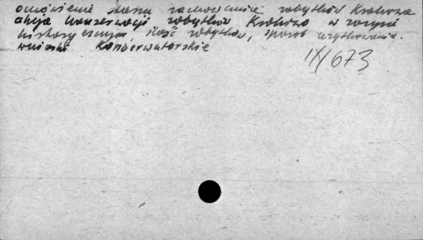 omówienie stanu zachowania zabytków Krakowa
akcja konserwacji zabytków Krakowa w
historycznym, ilość zabytków, sposób użytkowania.
wnioski konserwatorskie
IX/673